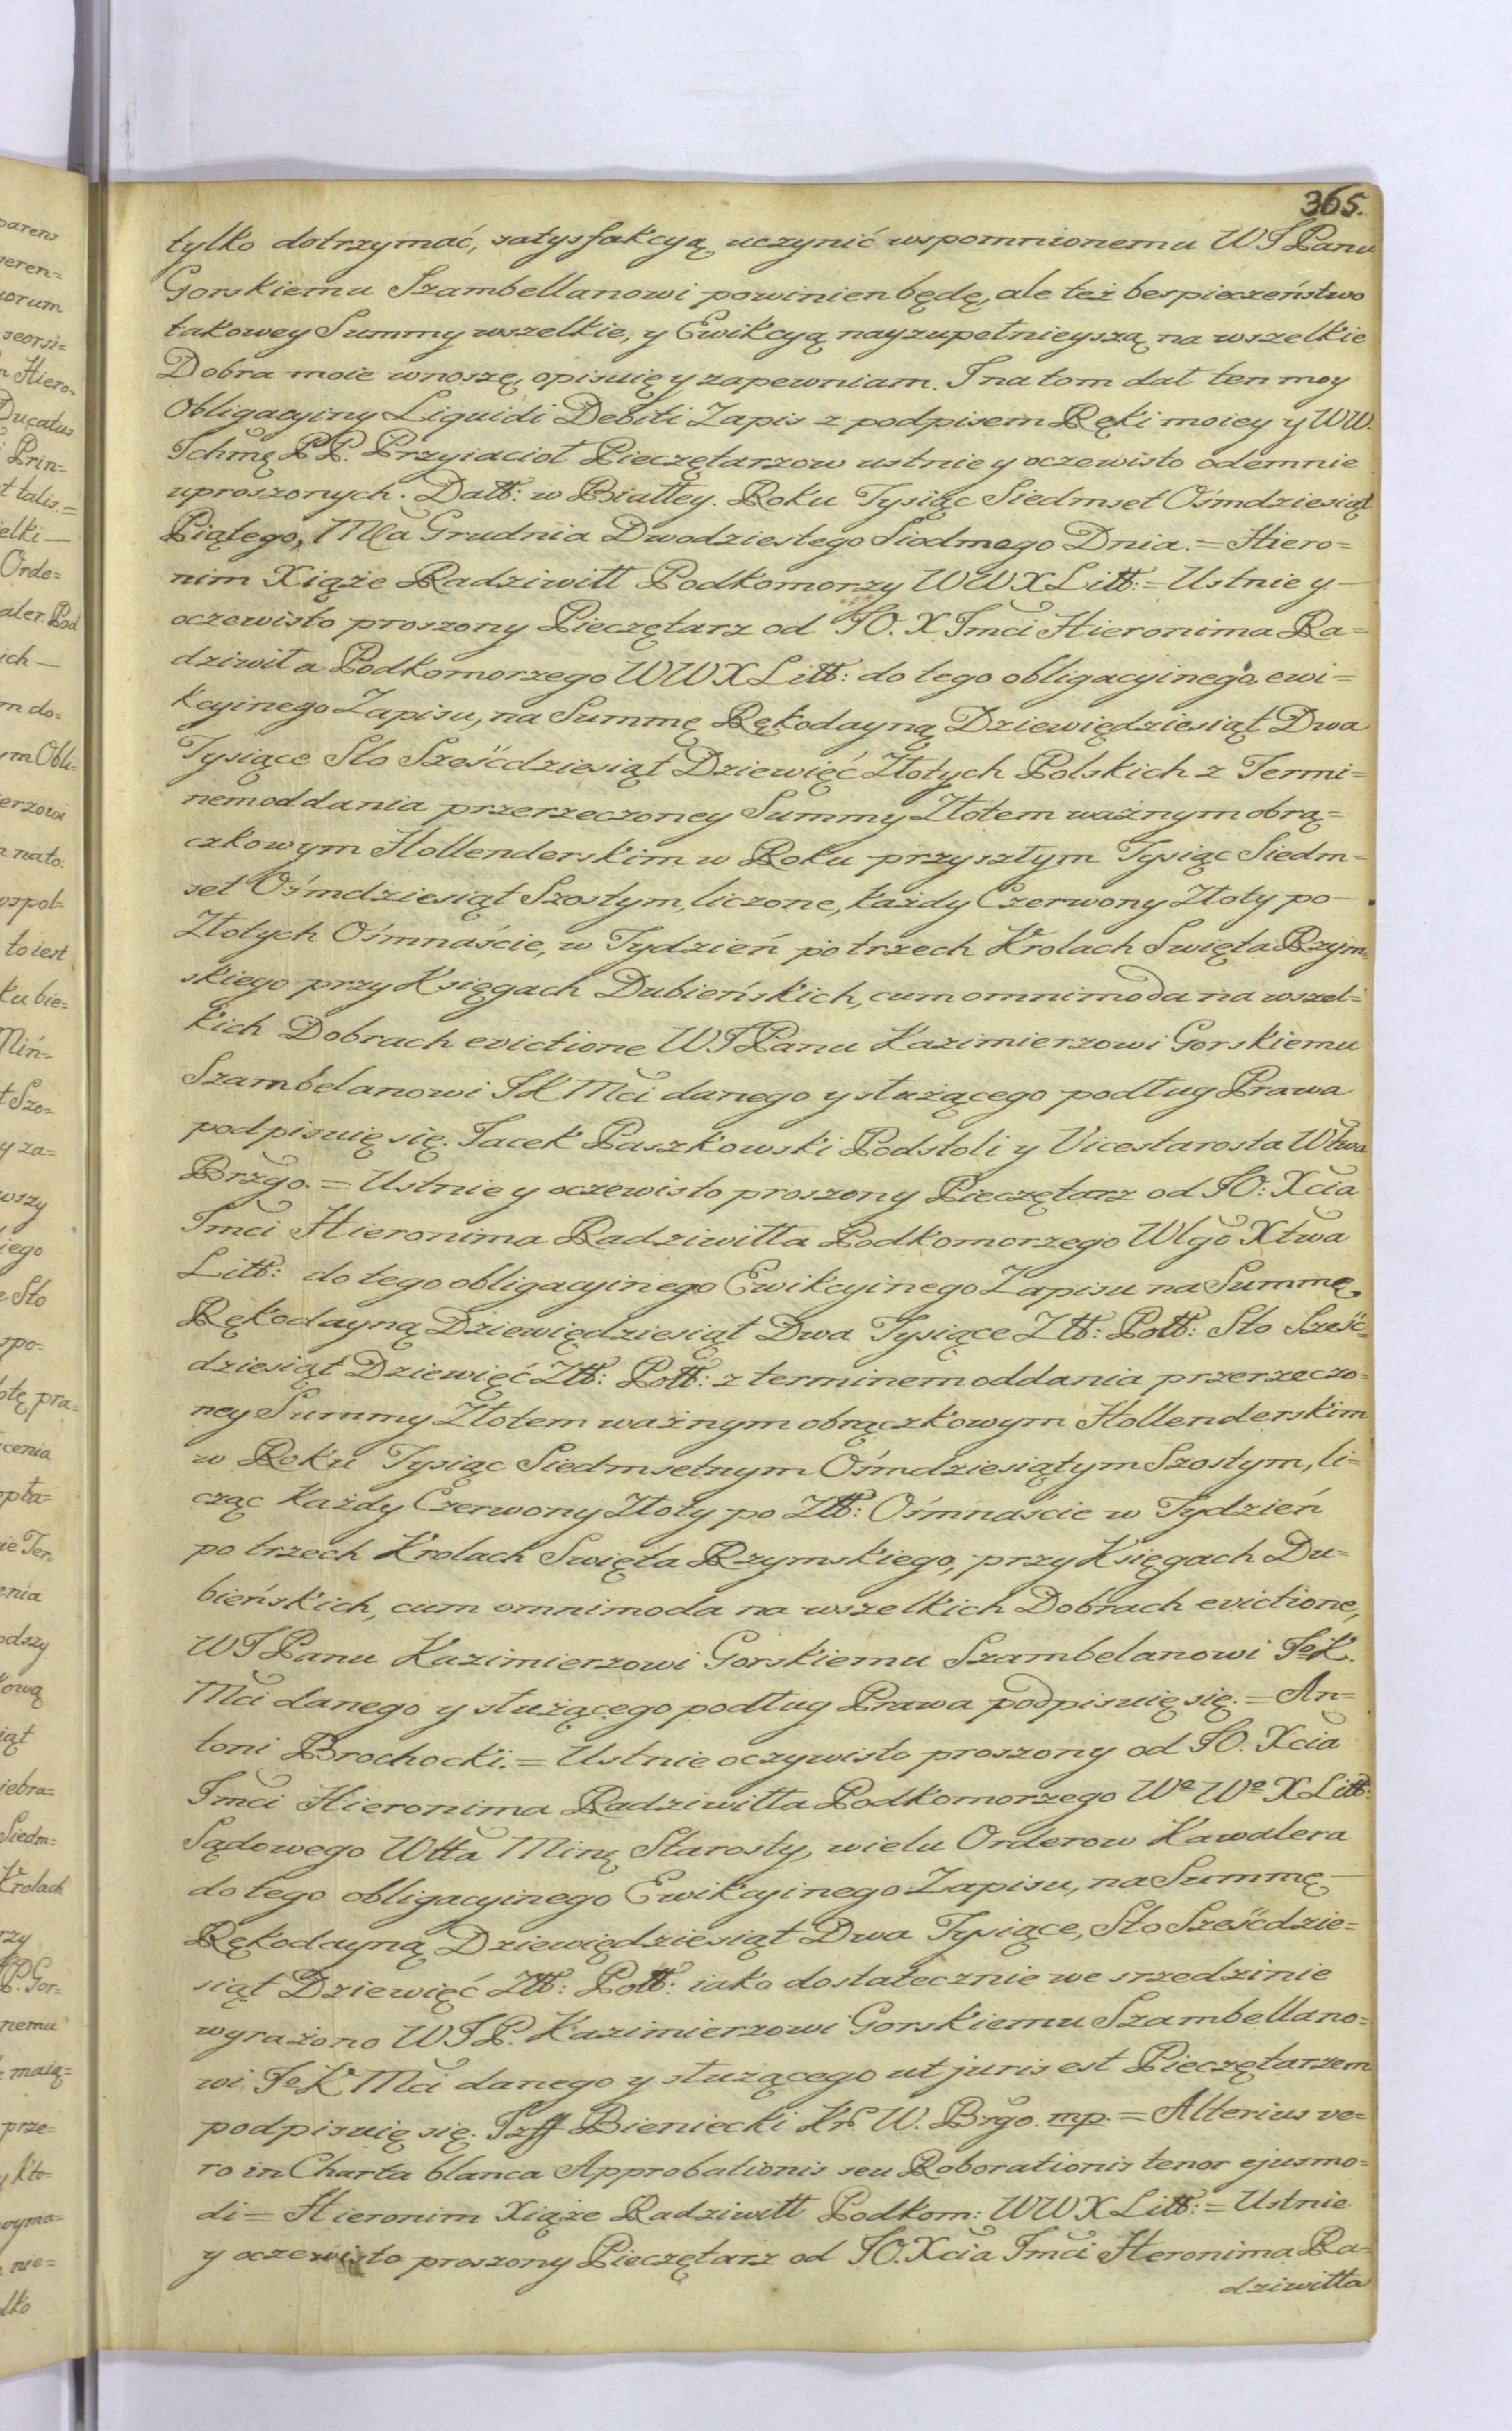 365.
tylko dotrzymać, satysfakcyą uczynić wspomnionemu WJPanu
Gorskiemu Szambellanowi powinien będę, ale też bespieczeństwo
takowey Summy wszelkie, y Ewikcyą nayzupełnieyszą na wszelkie
Dobra moie wnoszę, opisuię y zapewniam. I na tom dał ten moy
Obligacyiny Liquidi Debiti Zapis z podpisem Ręki moiey y WW.
Ichmę PP. Przyiacioł Pieczętarzow ustnie y oczewisto odemnie
uproszonych. Datt: w Białłey. Roku Tysiąc Siedmset Ośmdziesiąt
Piątego, Mca Grudnia Dwodziestego Siodmego Dnia. = Hiero=
nim Xiąże Radziwiłł Podkomorzy WWXLitt: = Ustnie y
oczewisto proszony Pieczętarz od JO. X Jmci Hieronima Ra=
dziwiła Podkomorzego WWXLitt: do tego obligacyinego, ewi=
kcyinego Zapisu, na Summę Rękodayną Dziewiędziesiąt Dwa
Tysiące Sto Sześćdziesiąt Dziewięć Złotych Polskich z Termi=
nem oddania przerzeczoney Summy Złotem ważnym obrą=
czkowym Hollenderskim w Roku przyszłym Tysiąc Siedm=
set Ośmdziesiąt Szostym, liczone, każdy Czerwony Złoty po
Złotych Ośmnaście, w Tydzień po trzech Krolach Swięta Rzym=
skiego przy Księgach Dubieńskich, cum omnimoda na wszel=
kich Dobrach evictione WJPanu Kazimierzowi Gorskiemu
Szambelanowi JKMci danego y służącego podług Prawa
podpisuię się. Jacek Paszkowski Podstoli y Vicestarosta Wtwa
Brzgo. = Ustnie y oczewisto proszony Pieczętarz od JO: Xcia
Jmci Hieronima Radziwiłła Podkomorzego Wlgo Xtwa
Litt: do tego obligacyinego Ewikcyinego Zapisu na Summę
Rękodayną Dziewiędziesiąt Dwa Tysiące Ztt: Pott: Sto Sześć=
dziesiąt Dziewięć Ztt: Pott: z terminem oddania przerzeczo=
ney Summy Złotem ważnym obrączkowym Hollenderskim
w Roku Tysiąc Siedmsetnym Ośmdziesiątym Szostym, li=
cząc każdy Czerwony Złoty po Ztt: Ośmnaście w Tydzień
po trzech Krolach Swięta Rzymskiego, przy Księgach Du=
bieńskich, cum omnimoda na wszelkich Dobrach evictione,
WJPanu Kazimierzowi Gorskiemu Szambelanowi JoK.
Mci danego y służącego podług Prawa podpisuię się. = An=
toni Brochocki. = Ustnie oczywisto proszony od JO. Xcia
Jmci Hieronima Radziwiłła Podkomorzego Wo Wo X Litt:
Sądowego Wtta Minę Starosty, wielu Orderow Kawalera
do tego obligacyinego Ewikcyinego Zapisu, na Summę
Rękodayną Dziewiędziesiąt Dwa Tysiące, Sto Sześćdzie=
siąt Dziewięć Ztt: Pott: iako dostatecznie we srzedzinie
wyrażono WJP. Kazimierzowi Gorskiemu Szambellano=
wi JoK Mci danego y służącego ut juris est Pieczętarzem
podpisuię się. Bieniecki W. Brgo. mp. = Alterius ve=
ro in Charta blanca Approbationis seu Roborationis tenor ejusmo=
di = Hieronim Xiąże Radziwiłł Podkom: WWXLitt: = Ustnie
y oczewisto proszony Pieczętarz od JO. Xcia Jmci Hieronima Ra=
dziwiłła